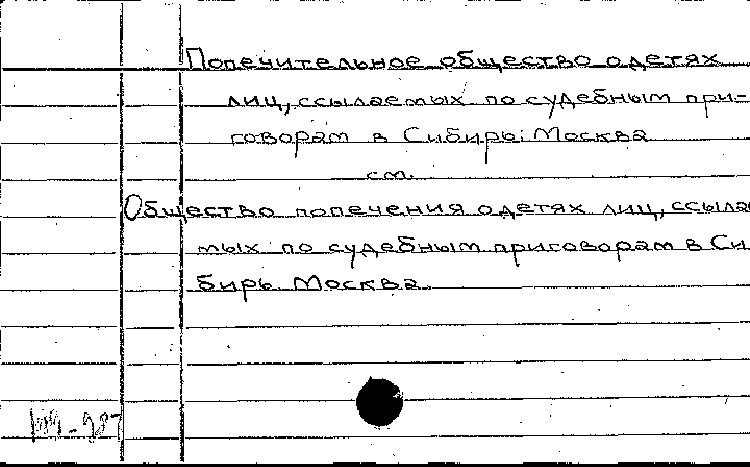 Попечительное общество о детях
лиц, ссылаемых по судебным при-
говорам в Сибирь. Москва
см.
Общество попечения о детях лиц, ссылае
мых по судебным приговорам в Си
бирь. Москва.